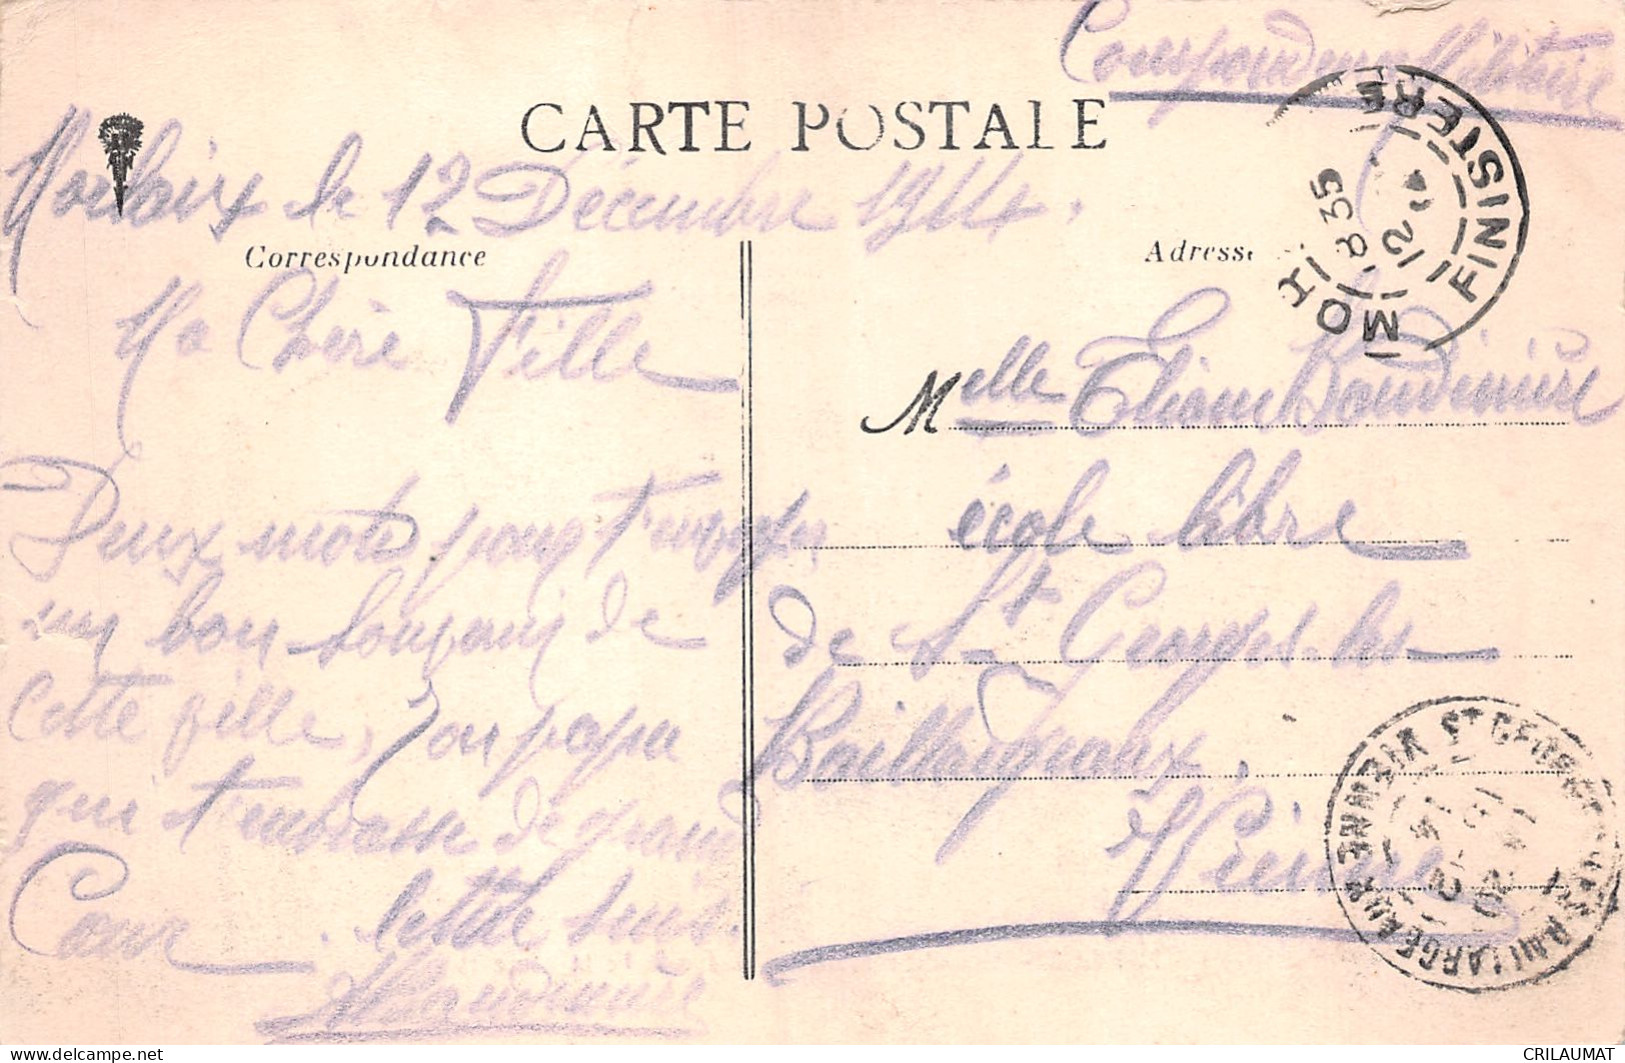 Correspondance Militaire
CARTE POSTALE
Morlaix le 12 Décembre 1914.
Correspondance
Ma Chère Fille
Deux mots pour t'envoyer
un bon souvenir de
cette fille, ton papa
qui t'embrasse de grand
Cœur. lettre suit.
Baudinière
Adresse
Melle Eliane Baudinière
école libre
de St Georges-les-
Baillargeaux,
Vienne
FINISTERE
8 35
12
ST GEORGES LES BAILLARGEAUX VIENNE
CRILAUMAT